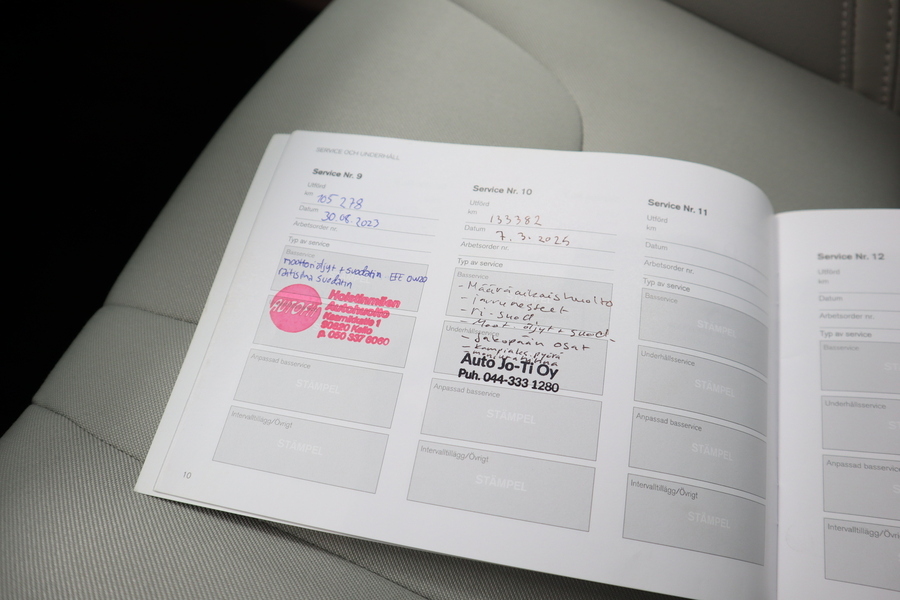 SERVICE OCH UNDERHÅLL
Service Nr. 9
Utförd
km 105 278
Datum 30.08.2023
Arbetsorder nr.
Typ av service
Basservice
moottoriöljyt + suodatin EFE 0W20
raitisilma suodatin
AUTOFIT
Holstinmäen
Autohuolto
Kaarnikkatie 1
90820 Kello
p. 050 337 8060
Anpassad basservice
STÄMPEL
Intervalltillägg/Övrigt
STÄMPEL
10
Service Nr. 10
Utförd
km 133382
Datum 7.3.2025
Arbetsorder nr.
Typ av service
Basservice
- Määräaikaishuolto
- jarrunesteet
- ri-suod
- Moot. öljyt + suod.
Underhållsservice
- Jakopään osat
Auto Jo-Ti Oy
Puh. 044-333 1280
Anpassad basservice
STÄMPEL
Intervalltillägg/Övrigt
STÄMPEL
Service Nr. 11
Utförd
km
Datum
Arbetsorder nr.
Typ av service
Basservice
STÄMPEL
Underhållsservice
STÄMPEL
Anpassad basservice
STÄMPEL
Intervalltillägg/Övrigt
STÄMPEL
Service Nr. 12
Utförd
km
Datum
Arbetsorder nr.
Typ av service
Basservice
Underhållsservice
Anpassad basservice
Intervalltillägg/Övri